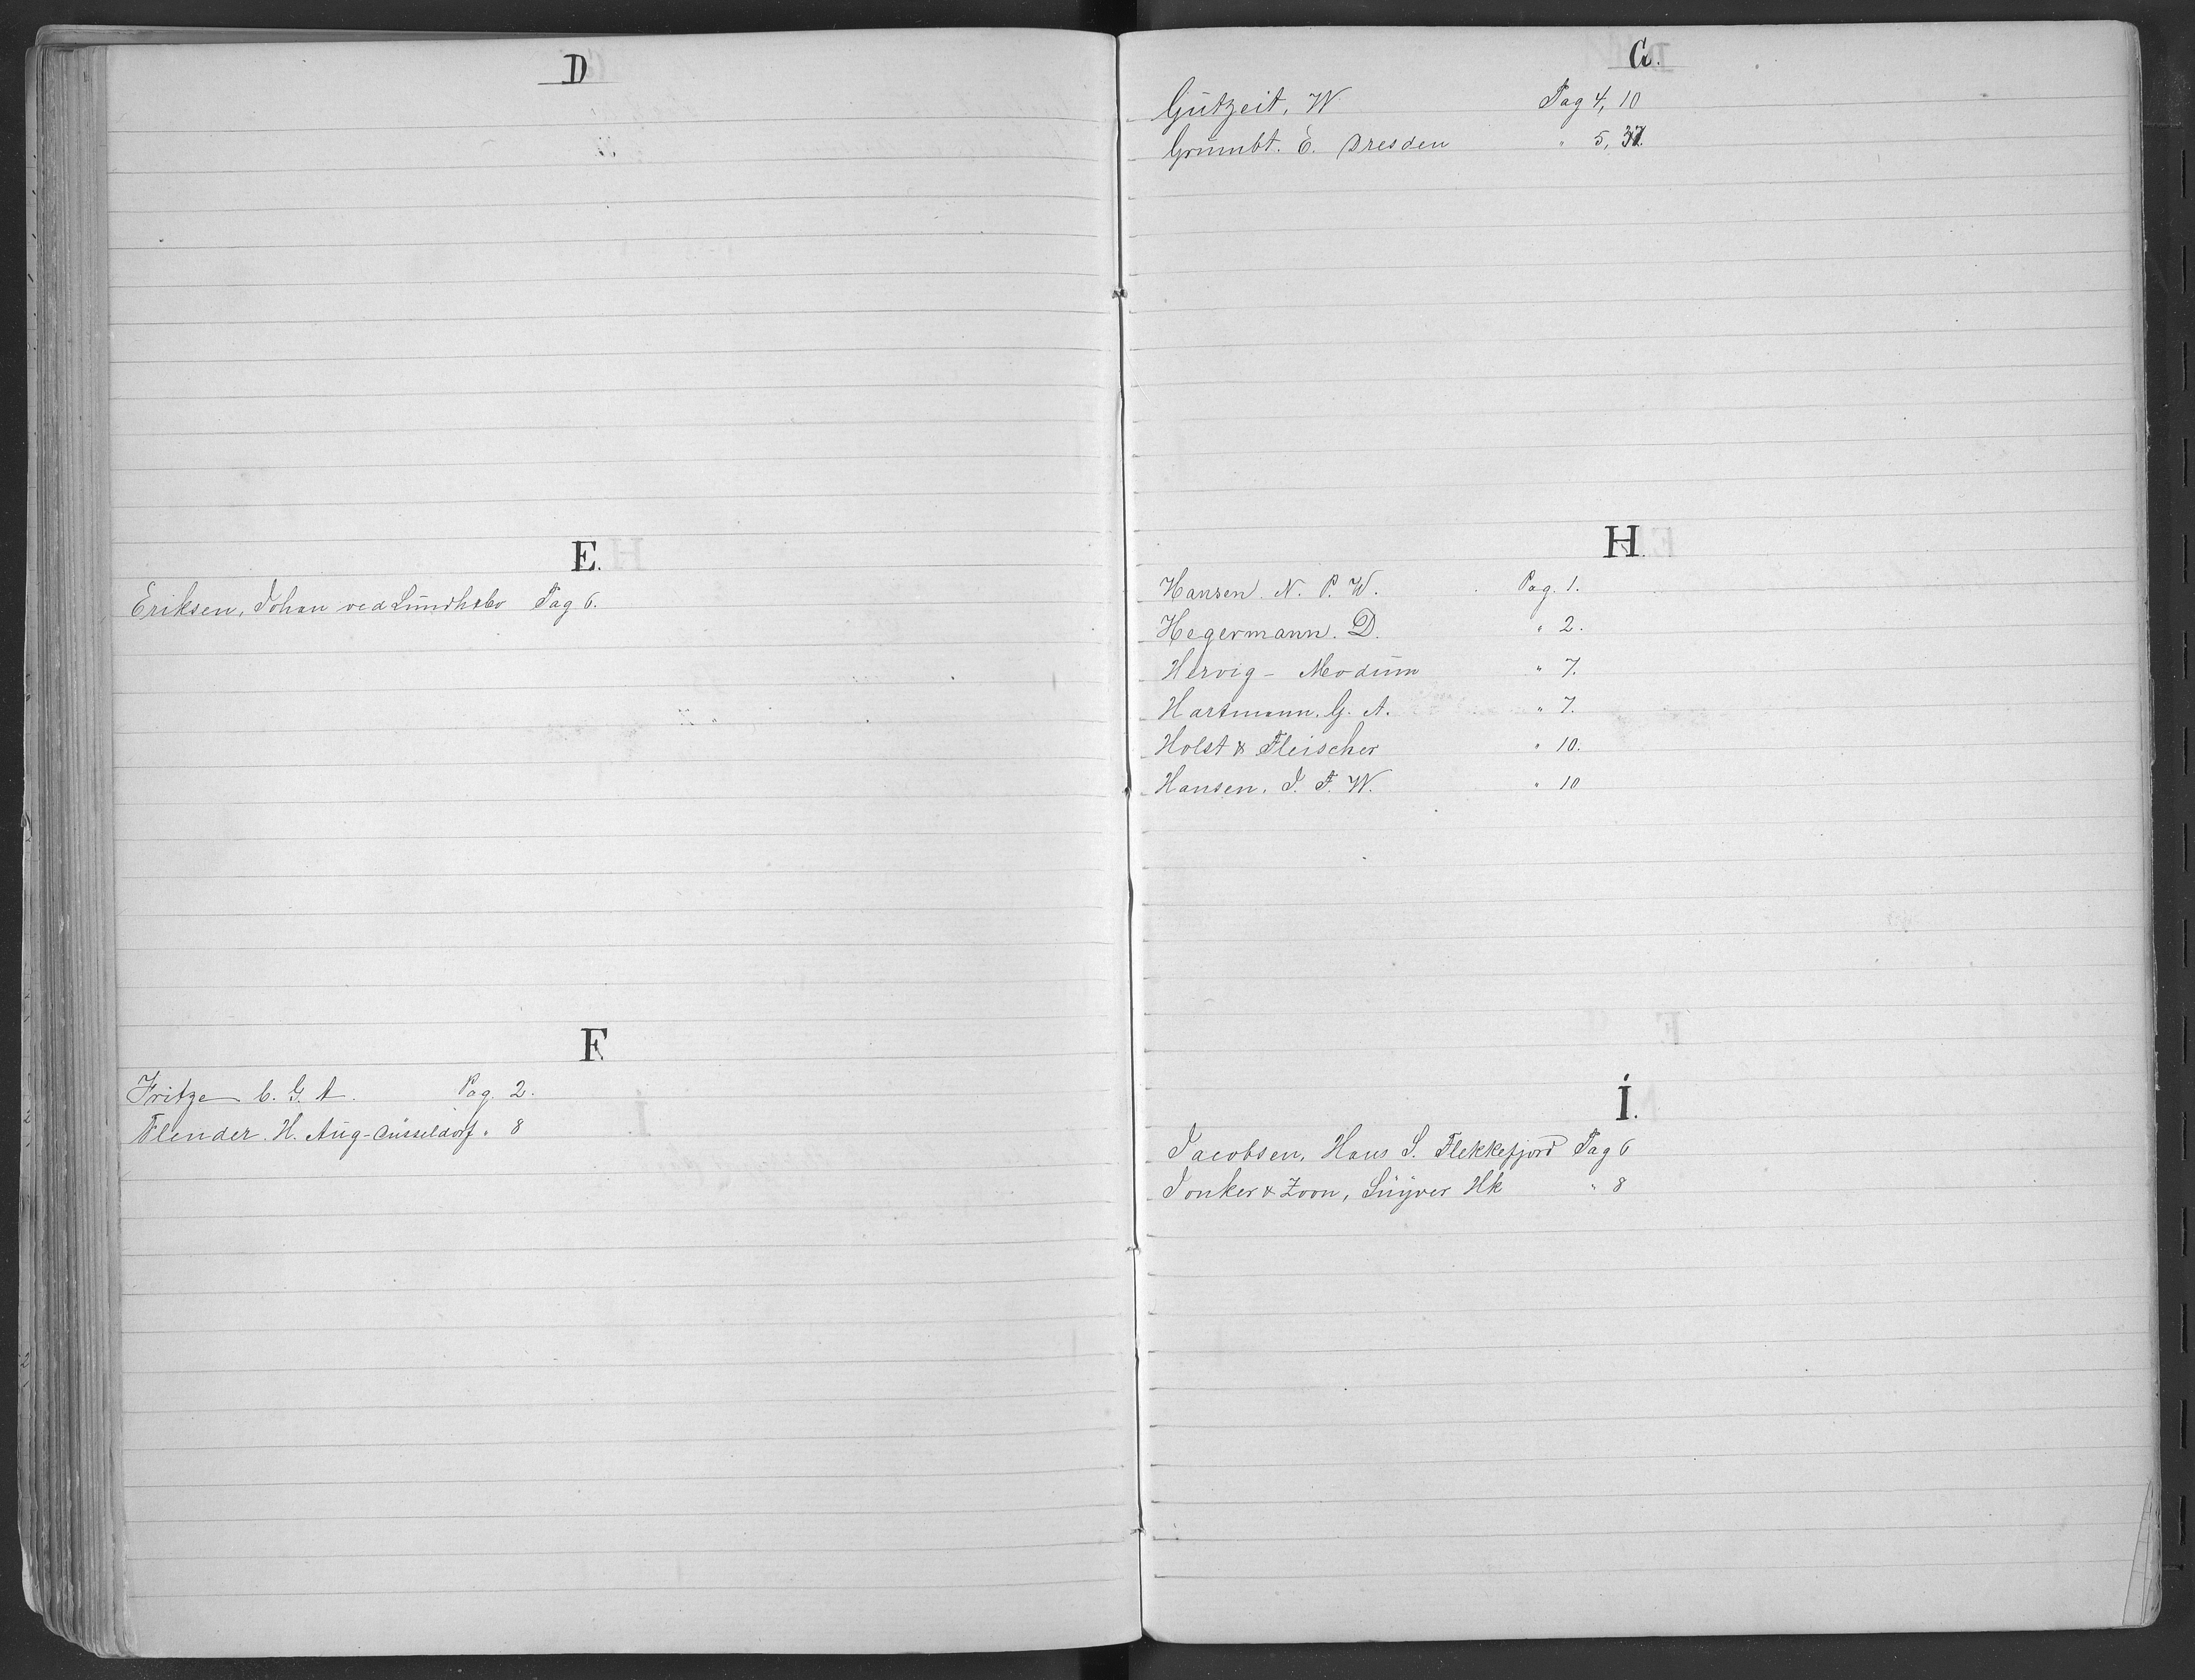 D
E.
Eriksen, Johan ved Lundhsbo Pag 6.
F
Fritze C. G. A. Pag. 2.
Flender. H. Aug- Düsseldorf " 8
G.
Gutzeit, W Pag 4, 10
Grumbt. E. Dresden " 5, 37.
H.
Hansen. N. P. W. Pag. 1.
Hegermann. D. " 2.
Hervig - Modum " 7.
Hartmann. G. A. " 7.
Holst & Fleischer " 10.
Hansen, J. F. W. " 10
I.
Jacobsen, Hans S. Flekkefjord Pag 6
Jonker & Zoon, Suyver Hk " 8